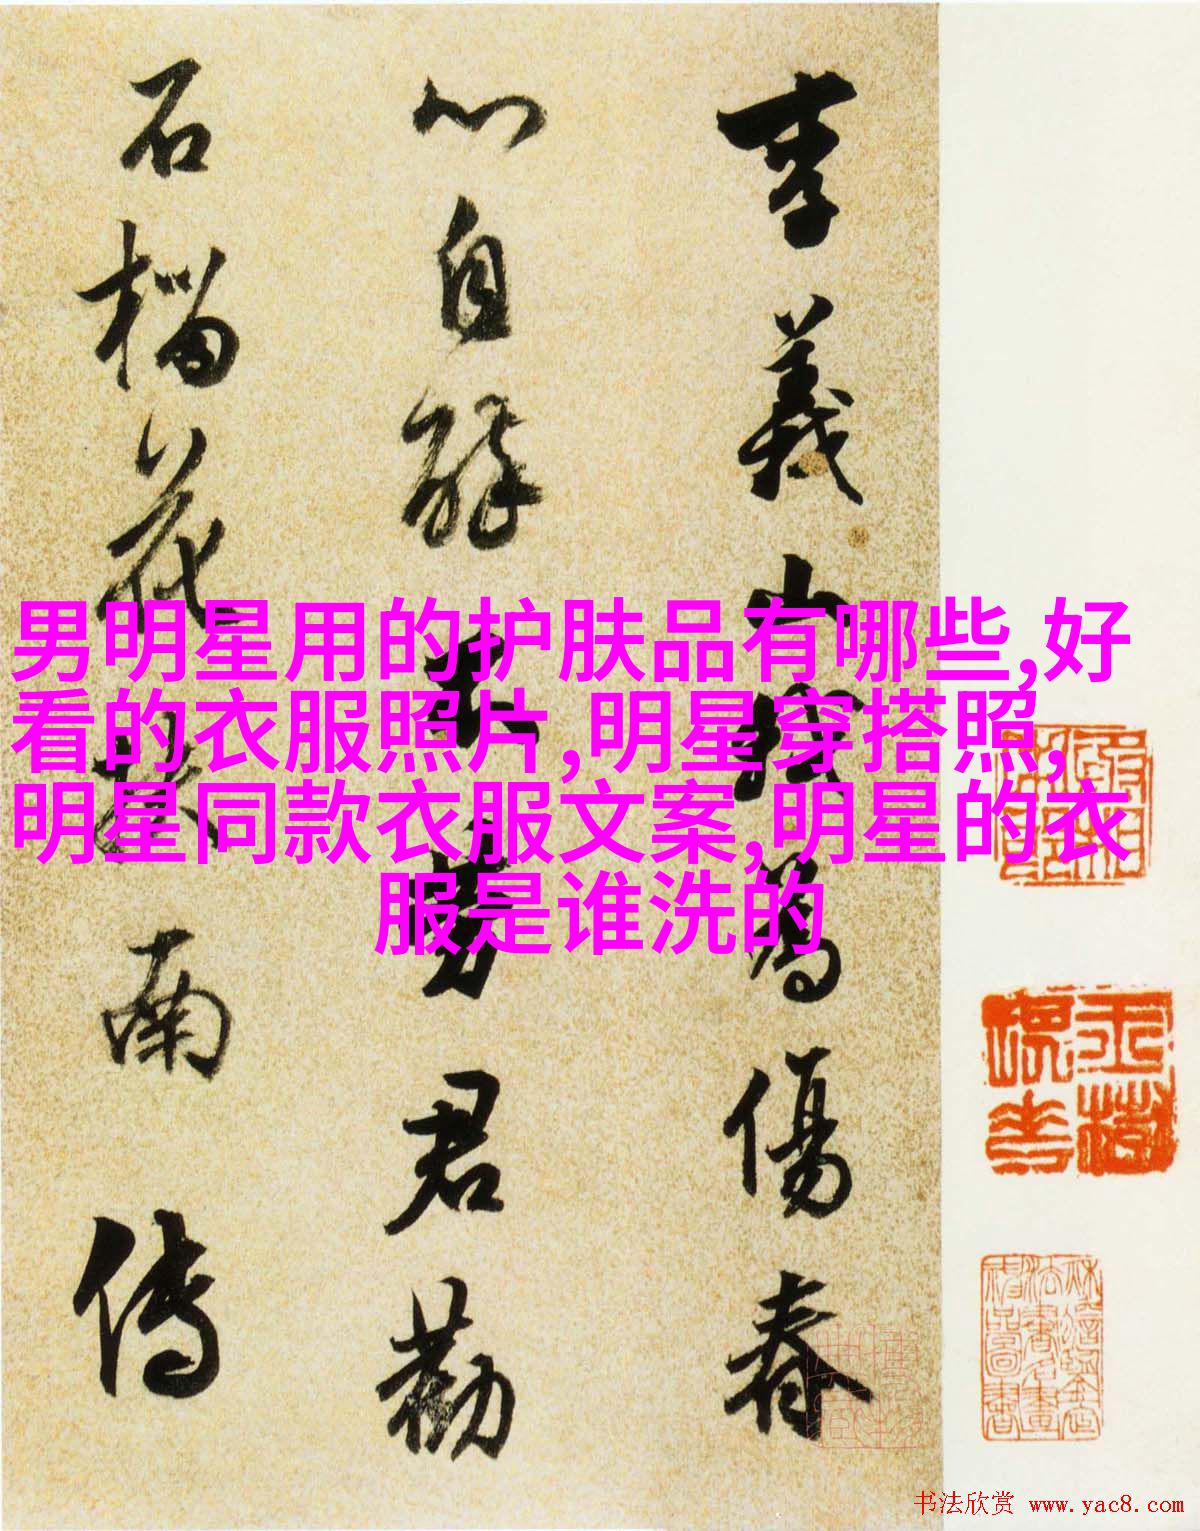 李義山我為傷春
心自醉不勞君勸
石榴花扶南傳
男明星用的护肤品有哪些,好
看的衣服照片,明星穿搭照,
明星同款衣服文案,明星的衣
服是谁洗的
书法欣赏 www.yac8.com